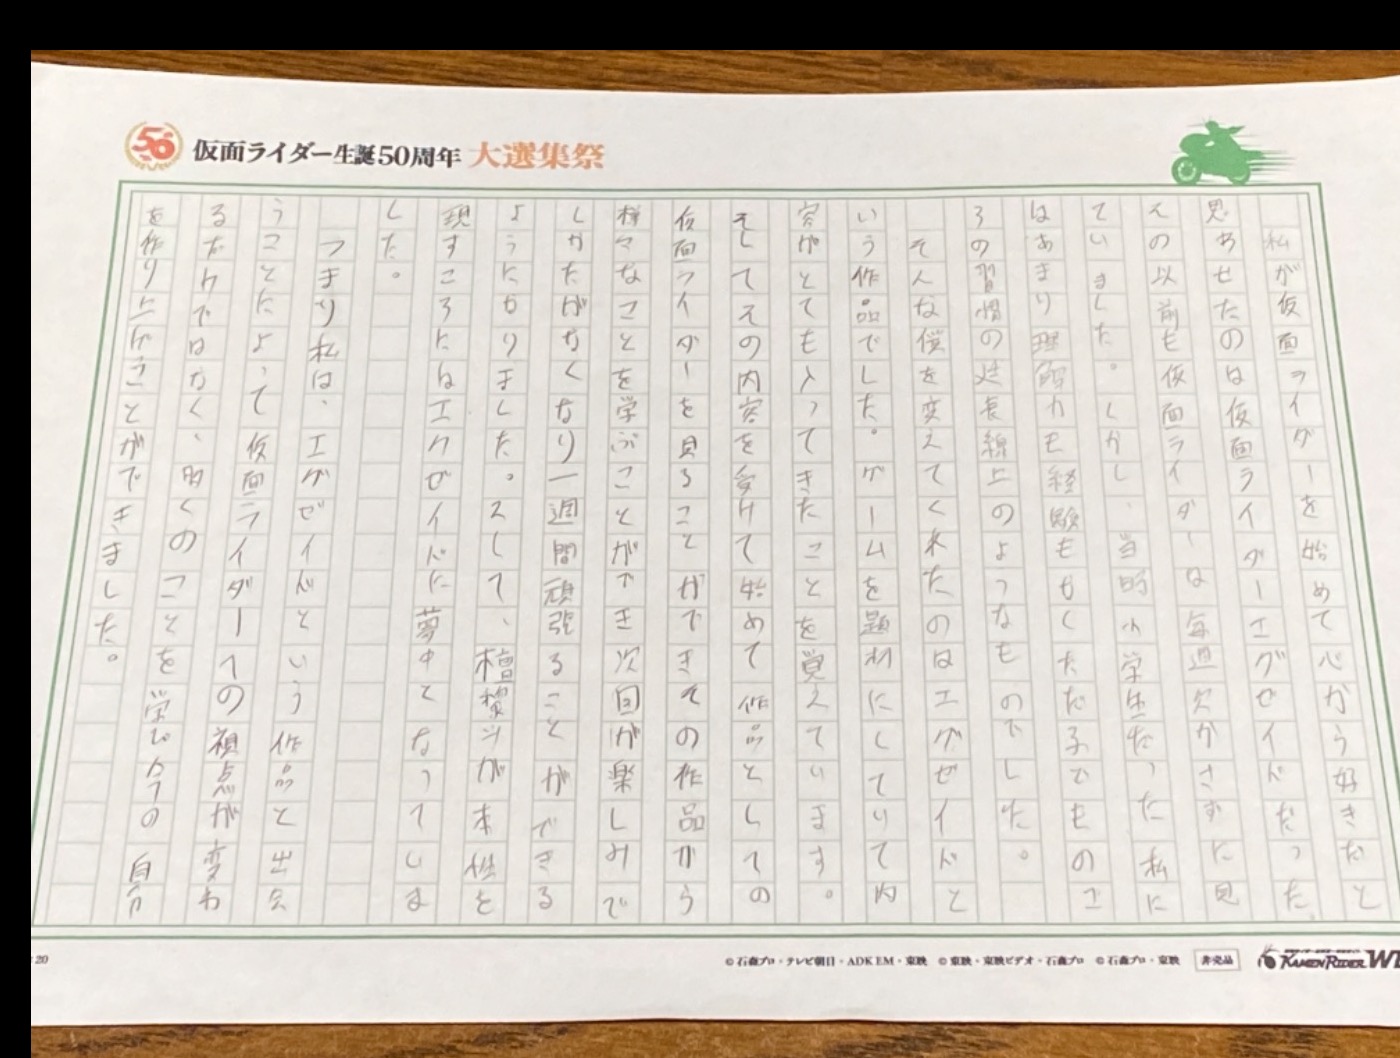 50 仮面ライダー生誕50周年 大選集祭
私が仮面ライダーを始めて心から好きだと
思わせたのは仮面ライダーエグゼイドだった。
その以前も仮面ライダーは毎週欠かさずに見
ていました。しかし、当時小学生だった私に
はあまり理解力も経験ももくただ子でものこ
ろの習慣の延長線上のようなものでした。
そんな僕を変えてくれたのはエグゼイドと
いう作品でした。ゲームを題材にしていて内
容がとても入ってきたことを覚えています。
そしてその内容を受けて始めて作品としての
仮面ライダーを見ることができその作品から
様々なことを学ぶことができ次回が楽しみで
しかたがなくなり一週間頑張ることができる
ようになりました。そして、檀黎斗が本性を
現すころにはエグゼイドに夢中となっていま
した。
つまり私は、エグゼイドという作品と出会
うことによって仮面ライダーへの視点が変わ
るだけでなく、多くのことを学び今の自分
を作り上げることができました。
20
©石森プロ・テレビ朝日・ADK EM・東映 ©東映・東映ビデオ・石森プロ ©石森プロ・東映
非売品
KAMEN RIDER WE